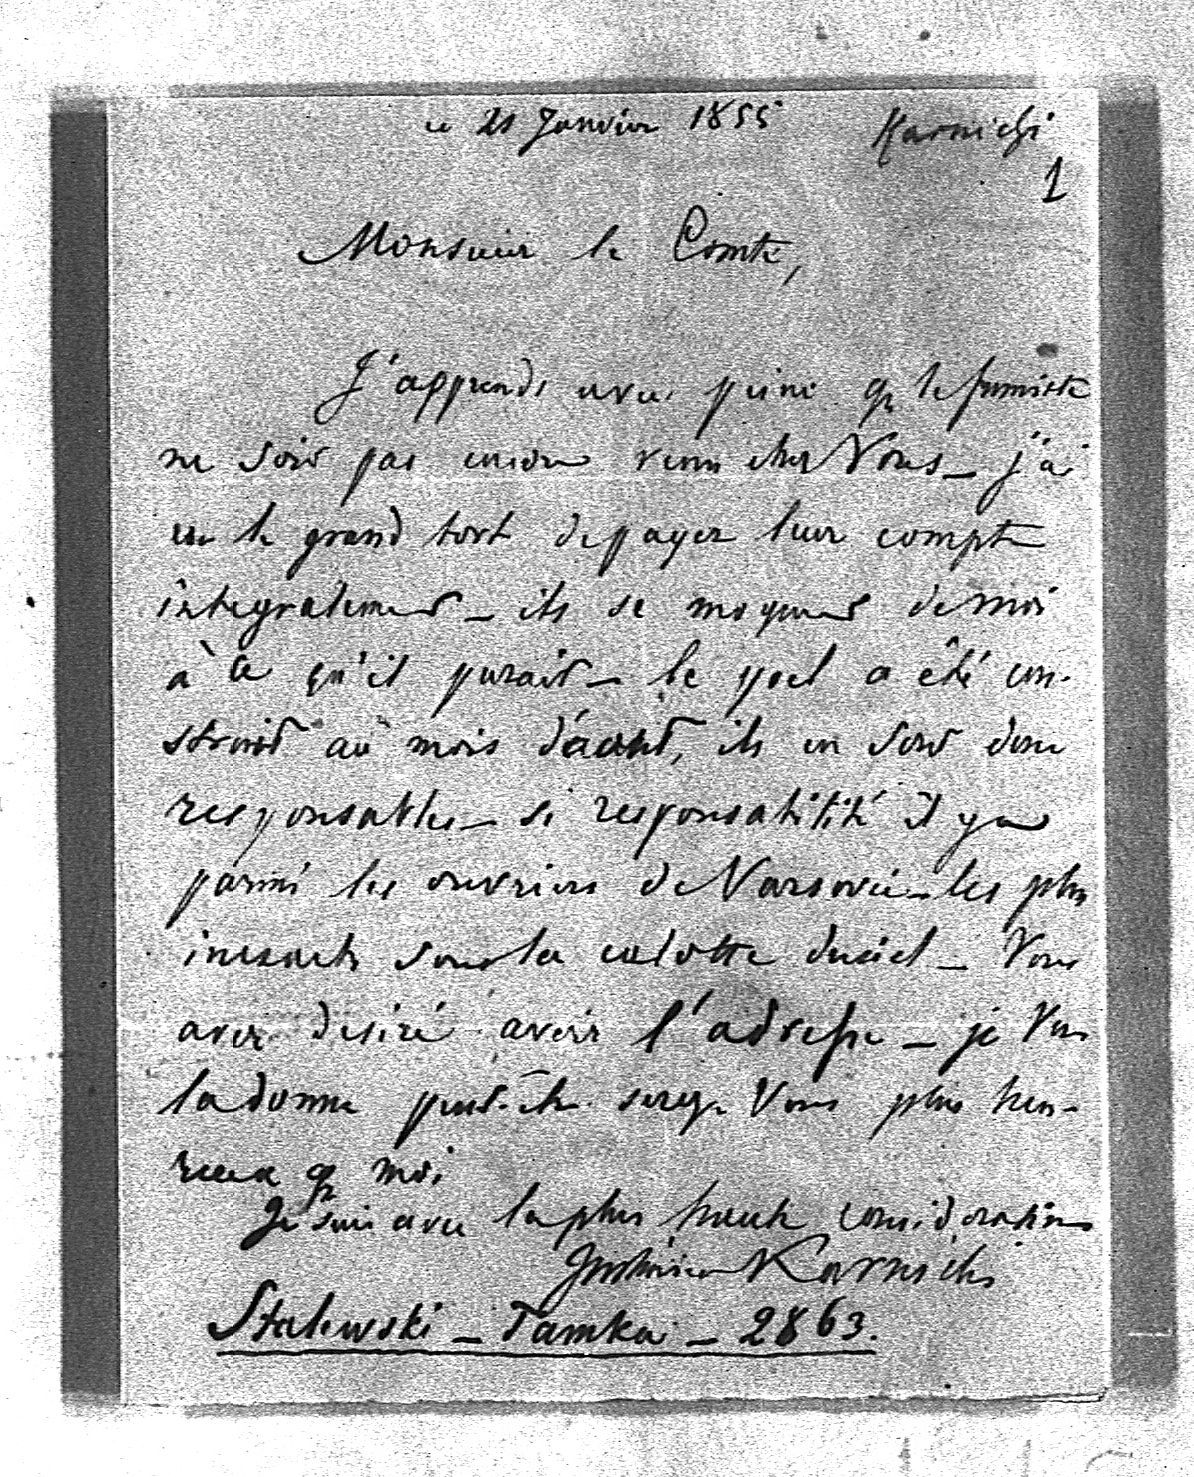 ce 21 Janvier 1855
Karnicki
1
Monsieur le Comte,
J'apprends avec peine q. le fumiste
ne soit pas encore venu chez Vous – j'ai
eu le grand tort de payer leur compte
intégralement – ils se moquent de moi
à ce qu'il parait – le poel a été con-
struit au mois d'août, ils en sont donc
responsables – si responsabilité il y a
parmi les ouvriers de Varsovie – les plus
inexacts sous la calotte du ciel – Vous
avez desiré avoir l'adresse – je Vous
la donne peut-être serez-Vous plus heu-
reux q. moi
Je suis avec la plus haute consideration
Karnicki
Stalewski – Tamka – 2863.